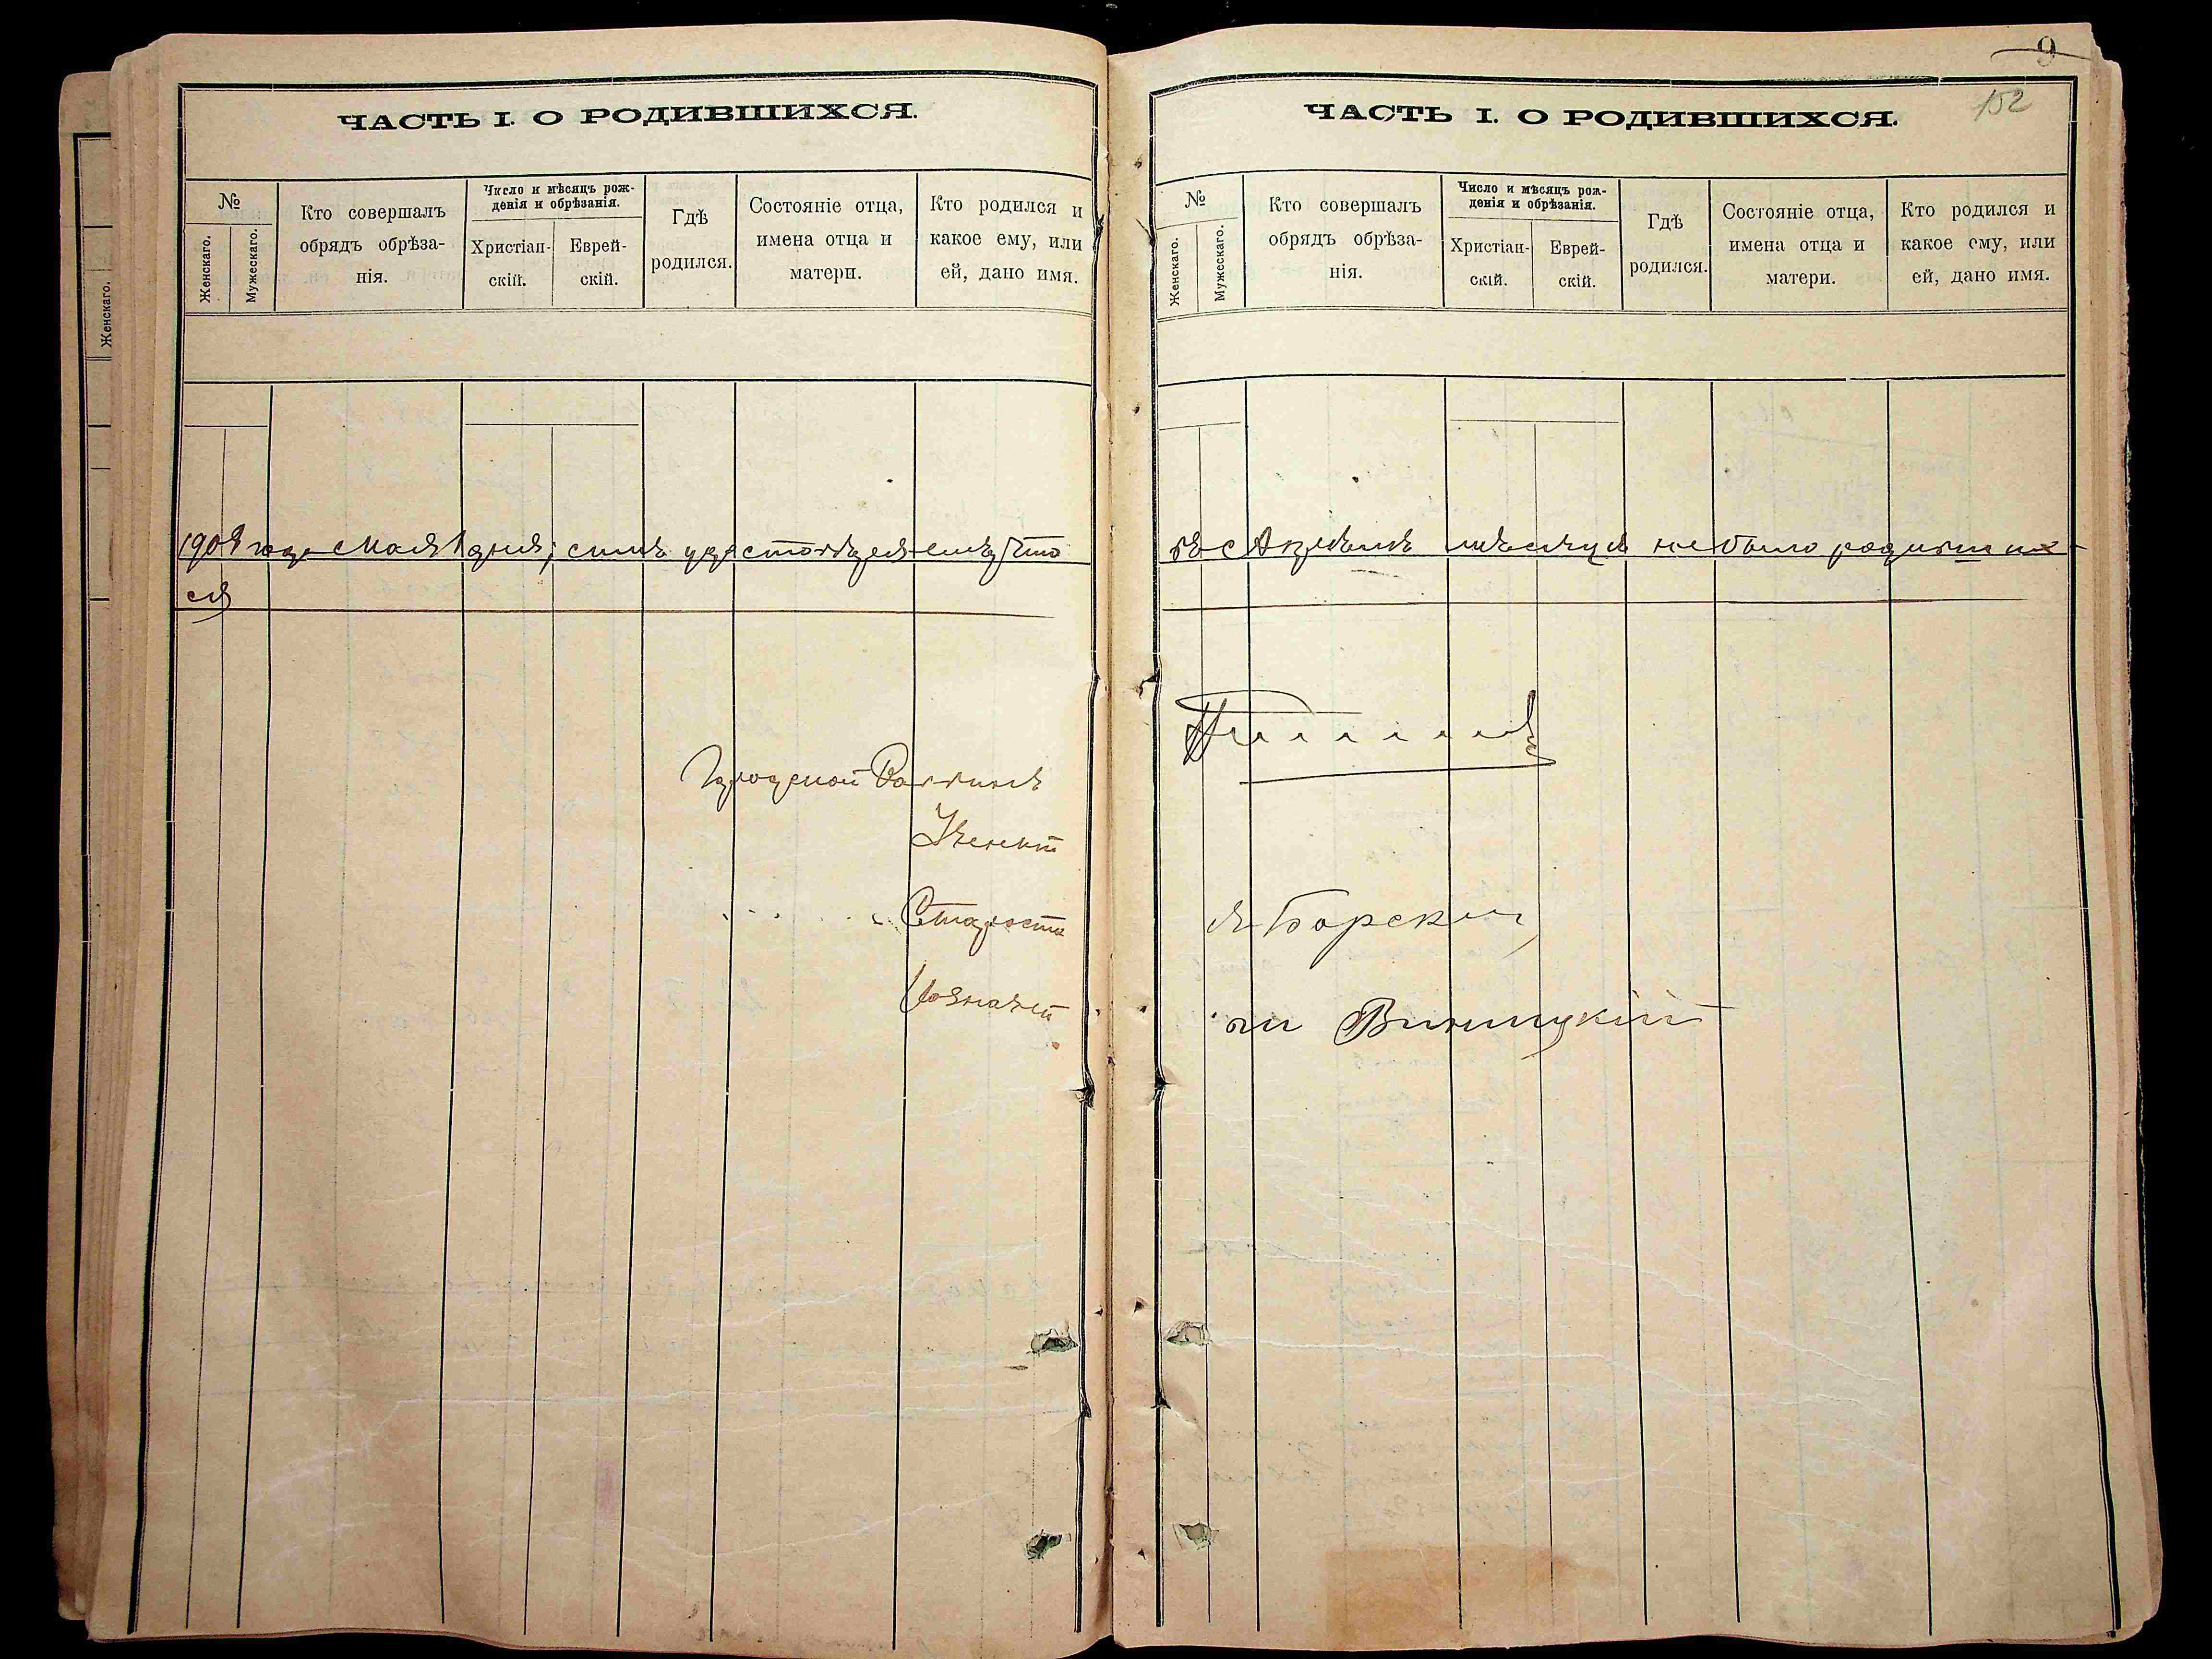 ЧАСТЬ I. О РОДИВШИХСЯ.
№
Женскаго.
Мужескаго.
Кто совершалъ
обрядъ обрѣза-
нія.
Число и мѣсяцъ рож-
денія и обрѣзанія.
Христіан-
скій.
Еврей-
скій.
Гдѣ
родился.
Состояніе отца,
имена отца и
матери.
Кто родился и
какое ему, или
ей, дано имя.
года Мая 1 дня; симъ удостовѣряемъ что
ся
Городской Раввинъ
Ученый
Староста
Казначей
Женскаго.
9
152
ЧАСТЬ I. О РОДИВШИХСЯ.
№
Женскаго.
Мужескаго.
Кто совершалъ
обрядъ обрѣза-
нія.
Число и мѣсяцъ рож-
денія и обрѣзанія.
Христіан-
скій.
Еврей-
скій.
Гдѣ
родился.
Состояніе отца,
имена отца и
матери.
Кто родился и
какое ему, или
ей, дано имя.
въ Апрѣлѣ мѣсяцѣ не было родивших-
Я Борский
Виницкій